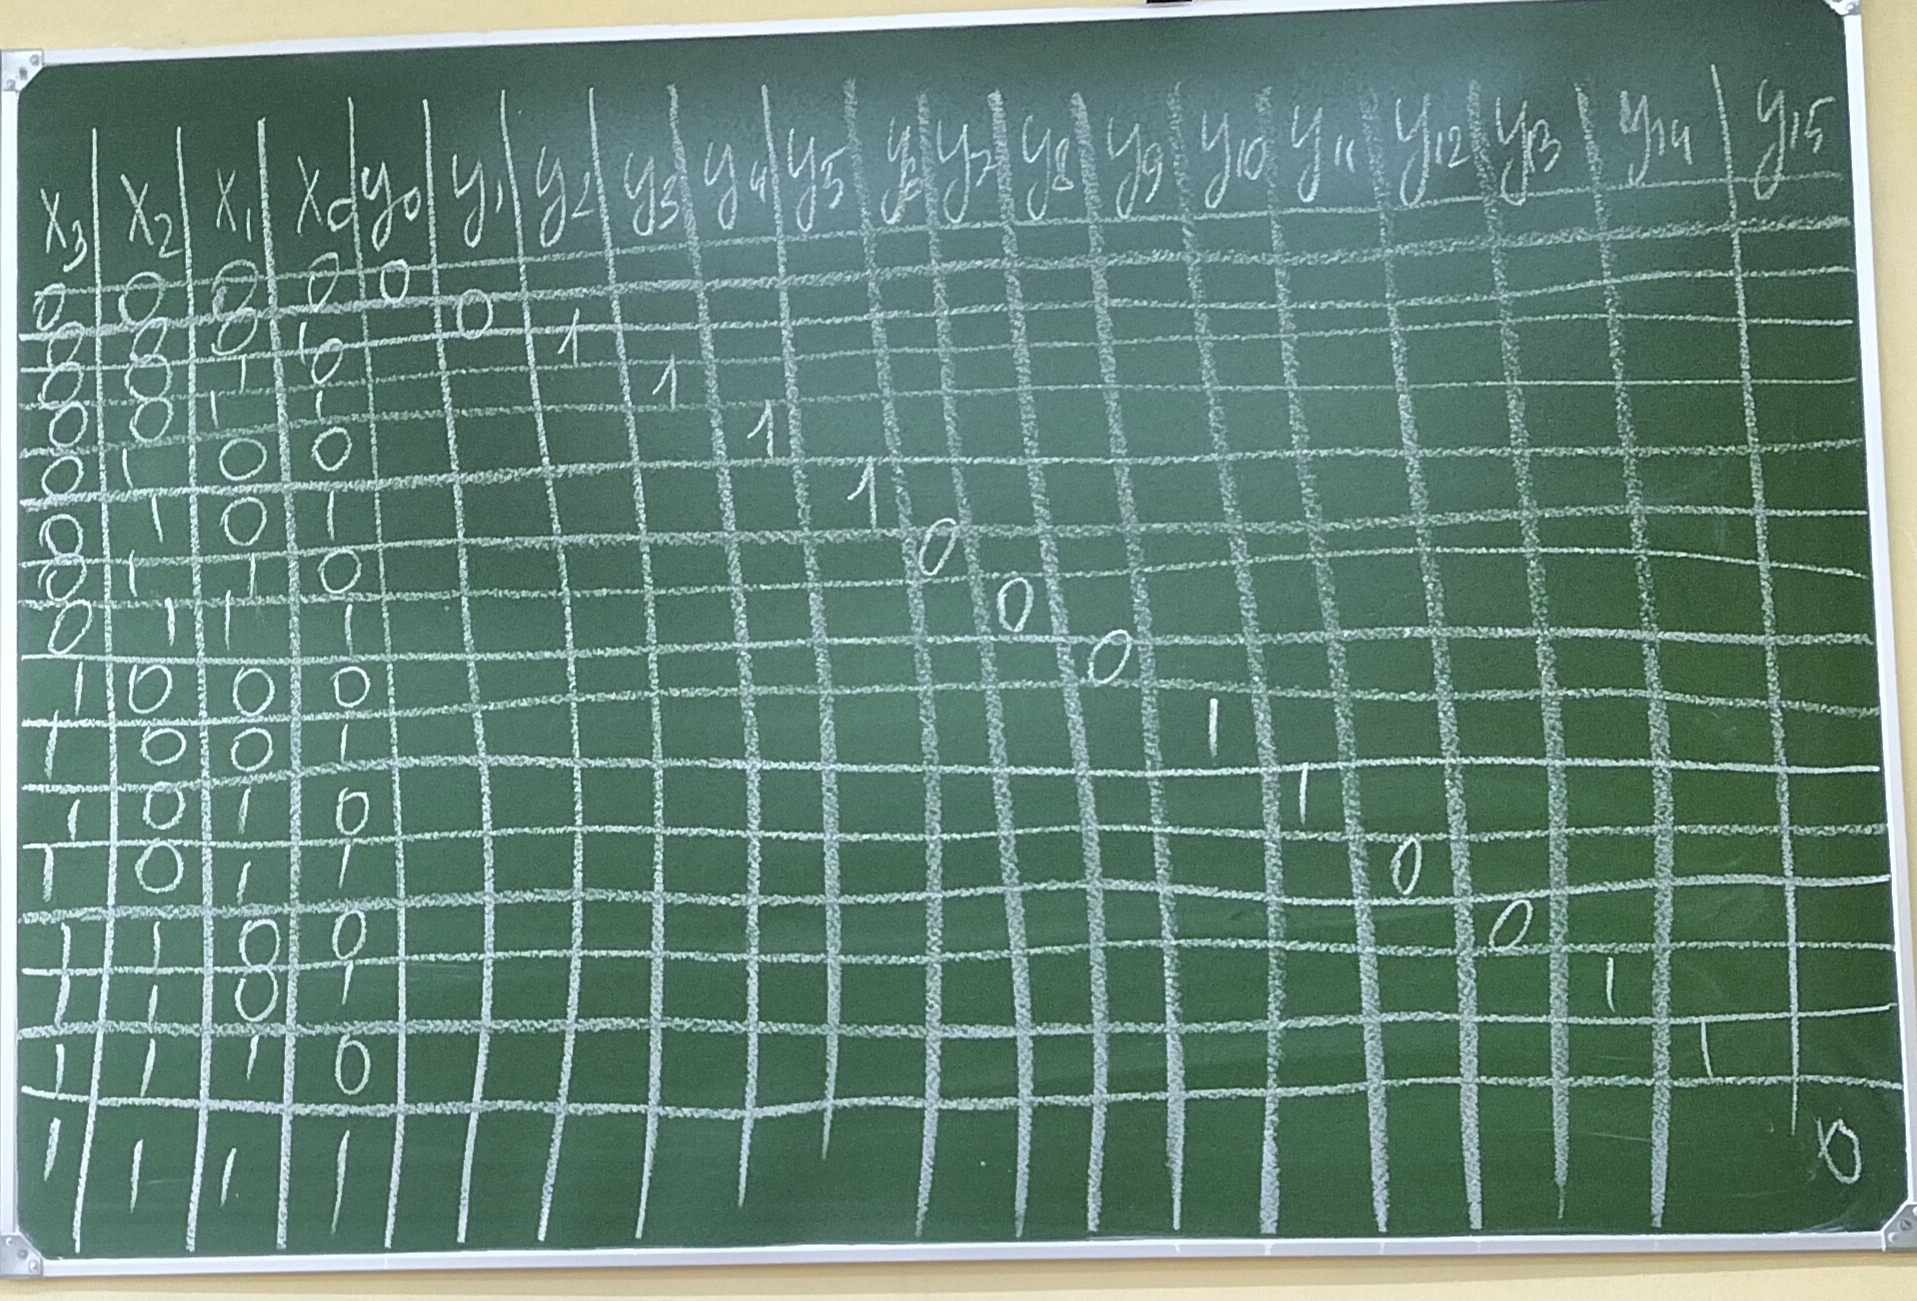 x3 x2 x1 x0 y0 y1 y2 y3 y4 y5 y6 y7 y8 y9 y10 y11 y12 y13 y14 y15
0 0 0 0 0
0 0 0 1 0
0 0 1 0 1
0 0 1 1 1
0 1 0 0 1
0 1 0 1 1
0 1 1 0 0
0 1 1 1 0
1 0 0 0 0
1 0 0 1 1
1 0 1 0 1
1 0 1 1 0
1 1 0 0 0
1 1 0 1 1
1 1 1 0 1
1 1 1 1 0